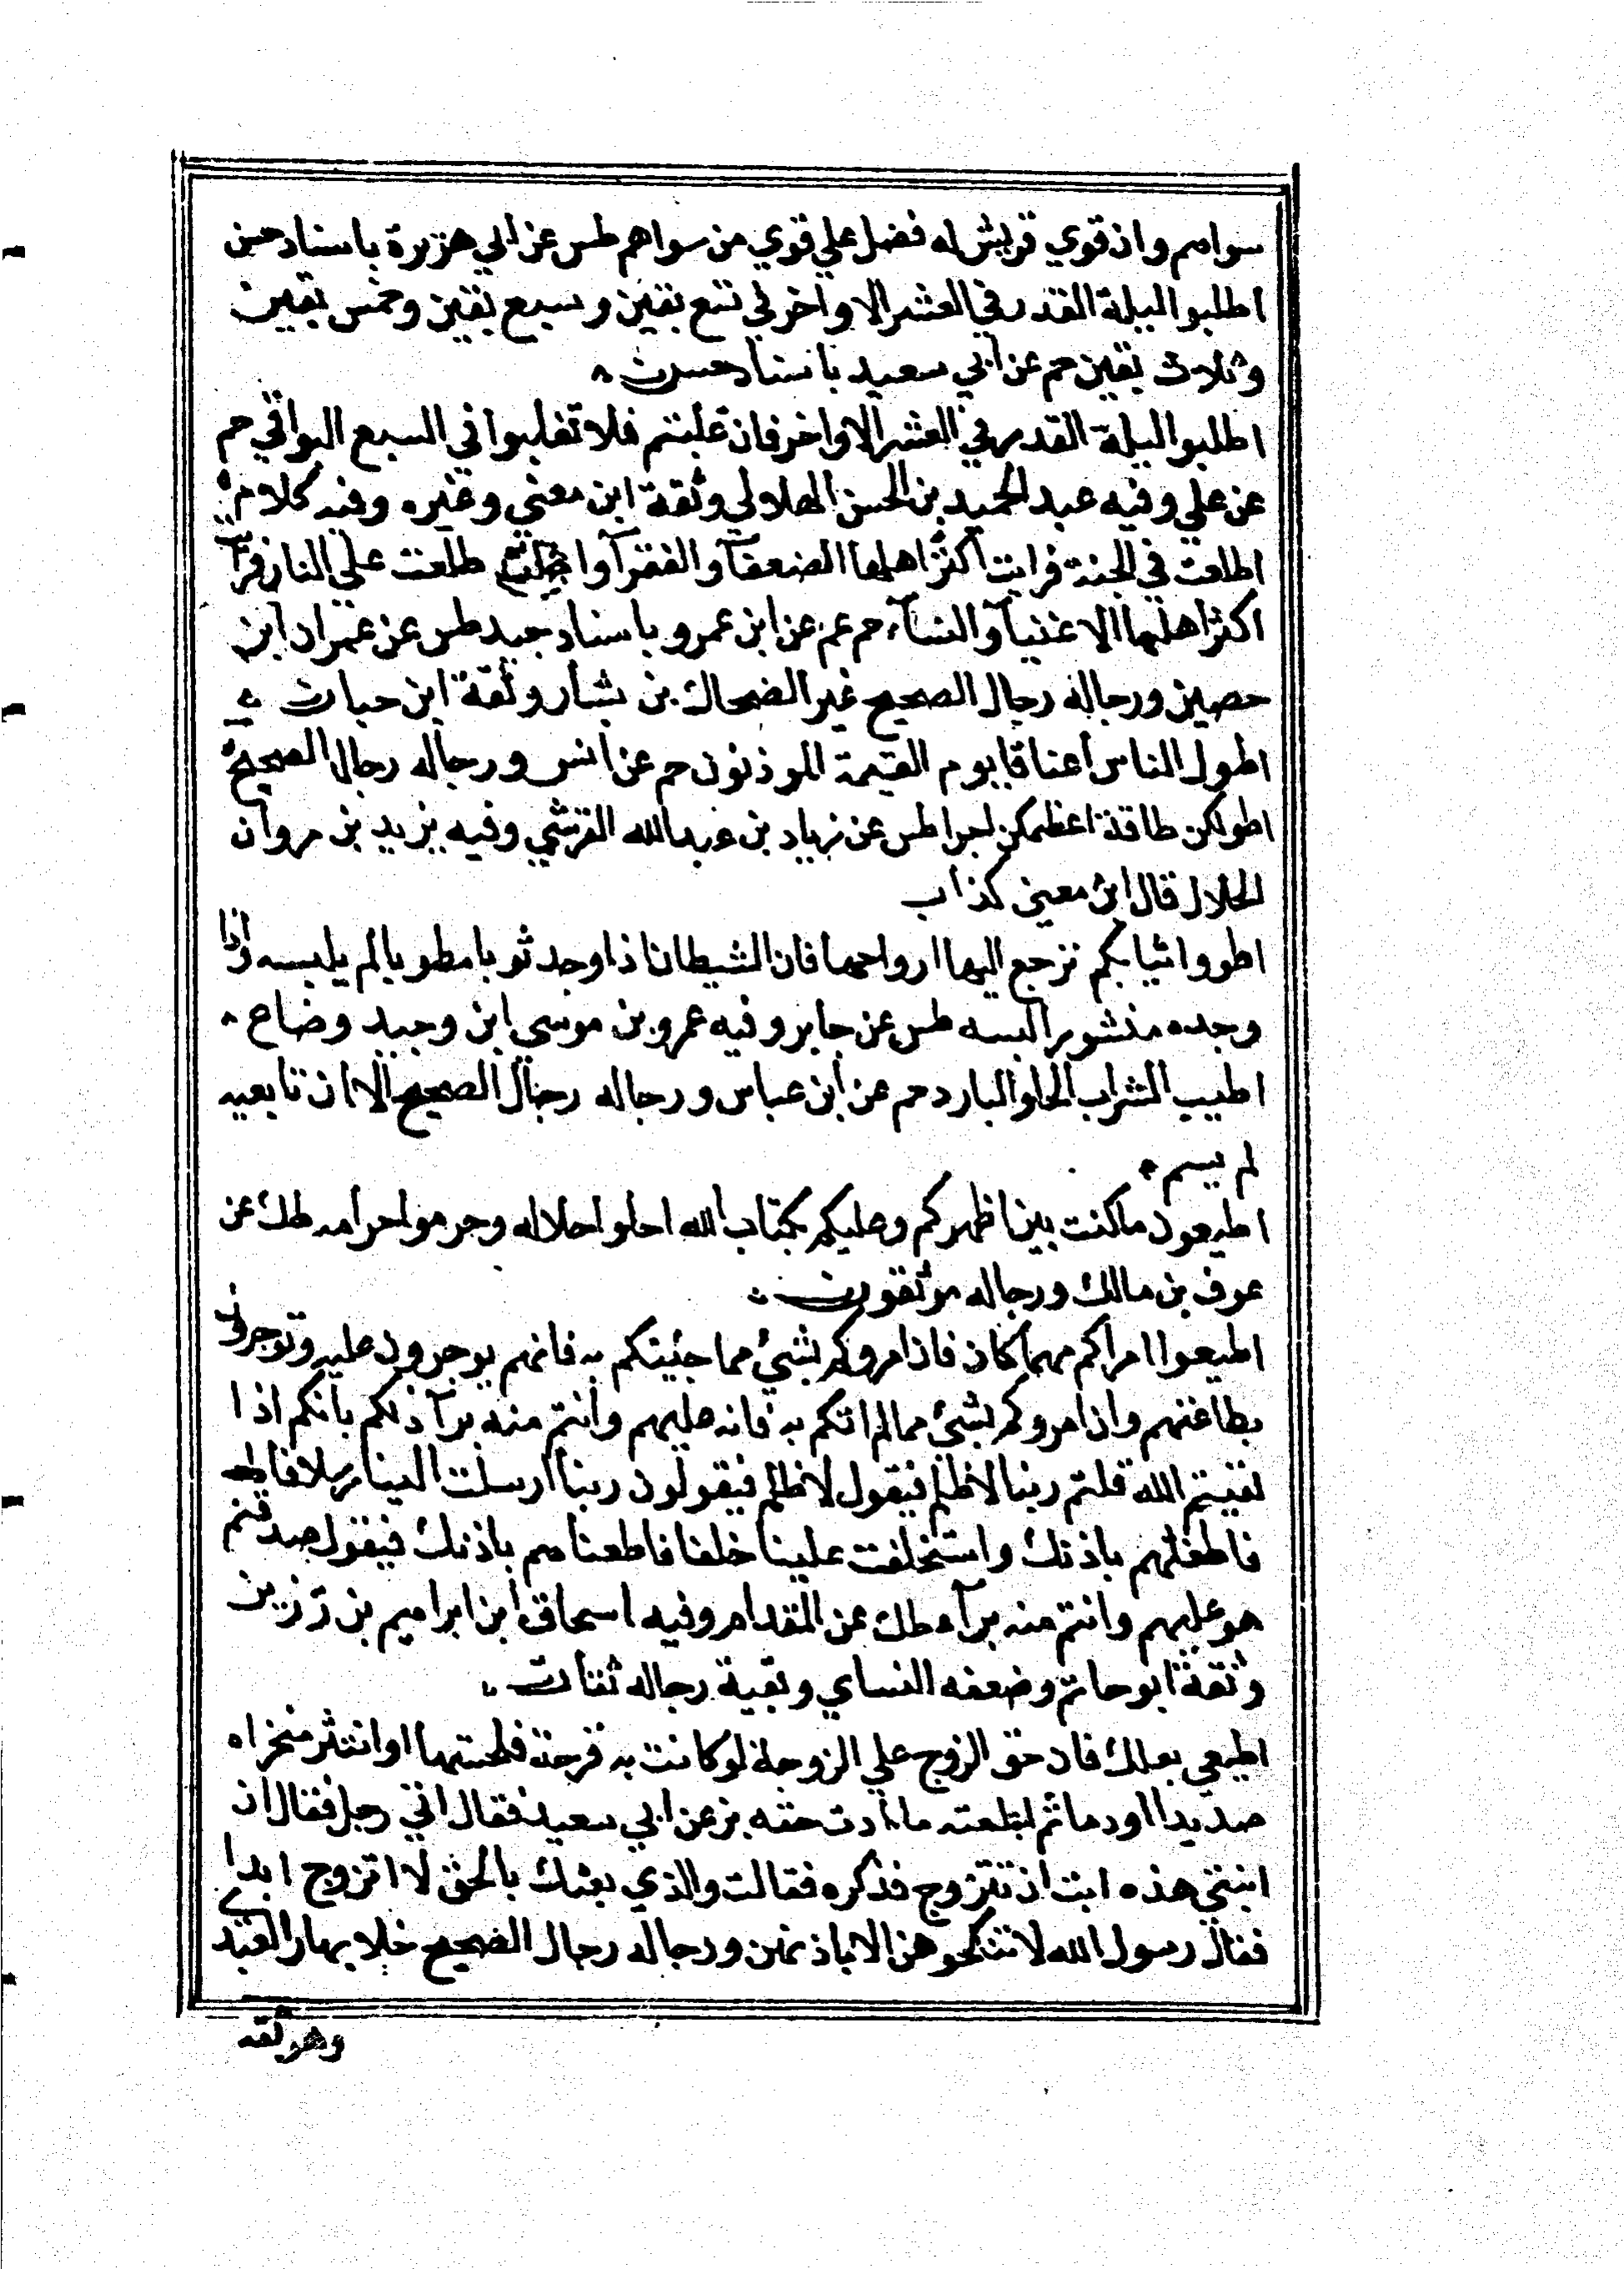 سواهم وان قوي قريش له فضل علي قوي من سواهم طس عن ابي هريرة باسناد حسن
اطلبوا ليلة القدر في العشر الاواخر في تسع بقين وسبع بقين وخمس بقين
وثلاث بقين حم عن ابي سعيد باسناد حسن
اطلبوا ليلة القدر في العشر الاواخر فان غلبتم فلا تغلبوا في السبع البواقي حم
عن علي وفيه عبد الحميد بن الحسن الهلالي وثقة ابن معين وغيره وفيه كلام
اطلعت في الجنة فرايت اكثر اهلها الضعفآ والفقرآ وا طلعت على النار فرايت
اكثر اهلها الاغنيآ والنسآء حم عم عن ابن عمرو باسناد جيد طس عن عمران ابن
حصين ورجاله رجال الصحيح غير الضحاك بن يشار وثقة ابن حبان
اطول الناس اعناقا يوم القيمة الموذنون حم عن انس ورجاله رجال الصحيح
اطولكن طاقة اعظمكن اجرا طس عن زياد بن عبد الله القرشي وفيه يزيد بن مروان
الخلال قال ابن معين كذاب
اطووا ثيابكم ترجع اليها ارواحها فان الشيطان اذا وجد ثوبا مطويا لم يلبسه واذا
وجده منشورا لبسه طس عن جابر وفيه عمرو بن موسي ابن وجيه وضاع
اطيب الشراب الحلو البارد حم عن ابن عباس ورجاله رجال الصحيح الا ان تابعيه
لم يسم
اطيعون ما كنت بين اظهركم وعليكم بكتاب الله احلوا حلاله وحرموا حرامه طك عن
عوف بن مالك ورجاله موثقون
اطيعوا امراكم مهما كان فان امروكم بشيء مما جئيتكم به فانهم يوجرون عليه وتوجرون
بطاعتهم وان امروكم بشيء مما لم اتكم به فانه عليهم وانتم منه برآ ذلكم بانكم اذا
لقيتم الله قلتم ربنا لا ظلم فيقول لا ظلم فيقولون ربنا ارسلت الينا رسلا
فاطعناهم باذنك واستخلفت علينا خلفا فاطعناهم باذنك فيقول صدقتم
هو عليهم وانتم منه برآء طك عن المقدام وفيه اسحاق ابن ابراهيم بن زريق
وثقة ابو حاتم وضعفه النساي وبقية رجاله ثقات
اطيعي بعلك فان حق الزوج علي الزوجة لو كانت به قرحة فلحستها او انتثر منخراه
صديدا او دما ثم ابتلعته ما ادت حقه بز عن ابي سعيد فقال اتي رجل فقال ان
ابنتي هذه ابت ان تتزوج فذكره فقالت والذي بعثك بالحق لا اتزوج ابدا
فقال رسول الله لا تنكحوهن الا باذنهن ورجاله رجال الصحيح خلا نهار العبدي
وهو ثقه